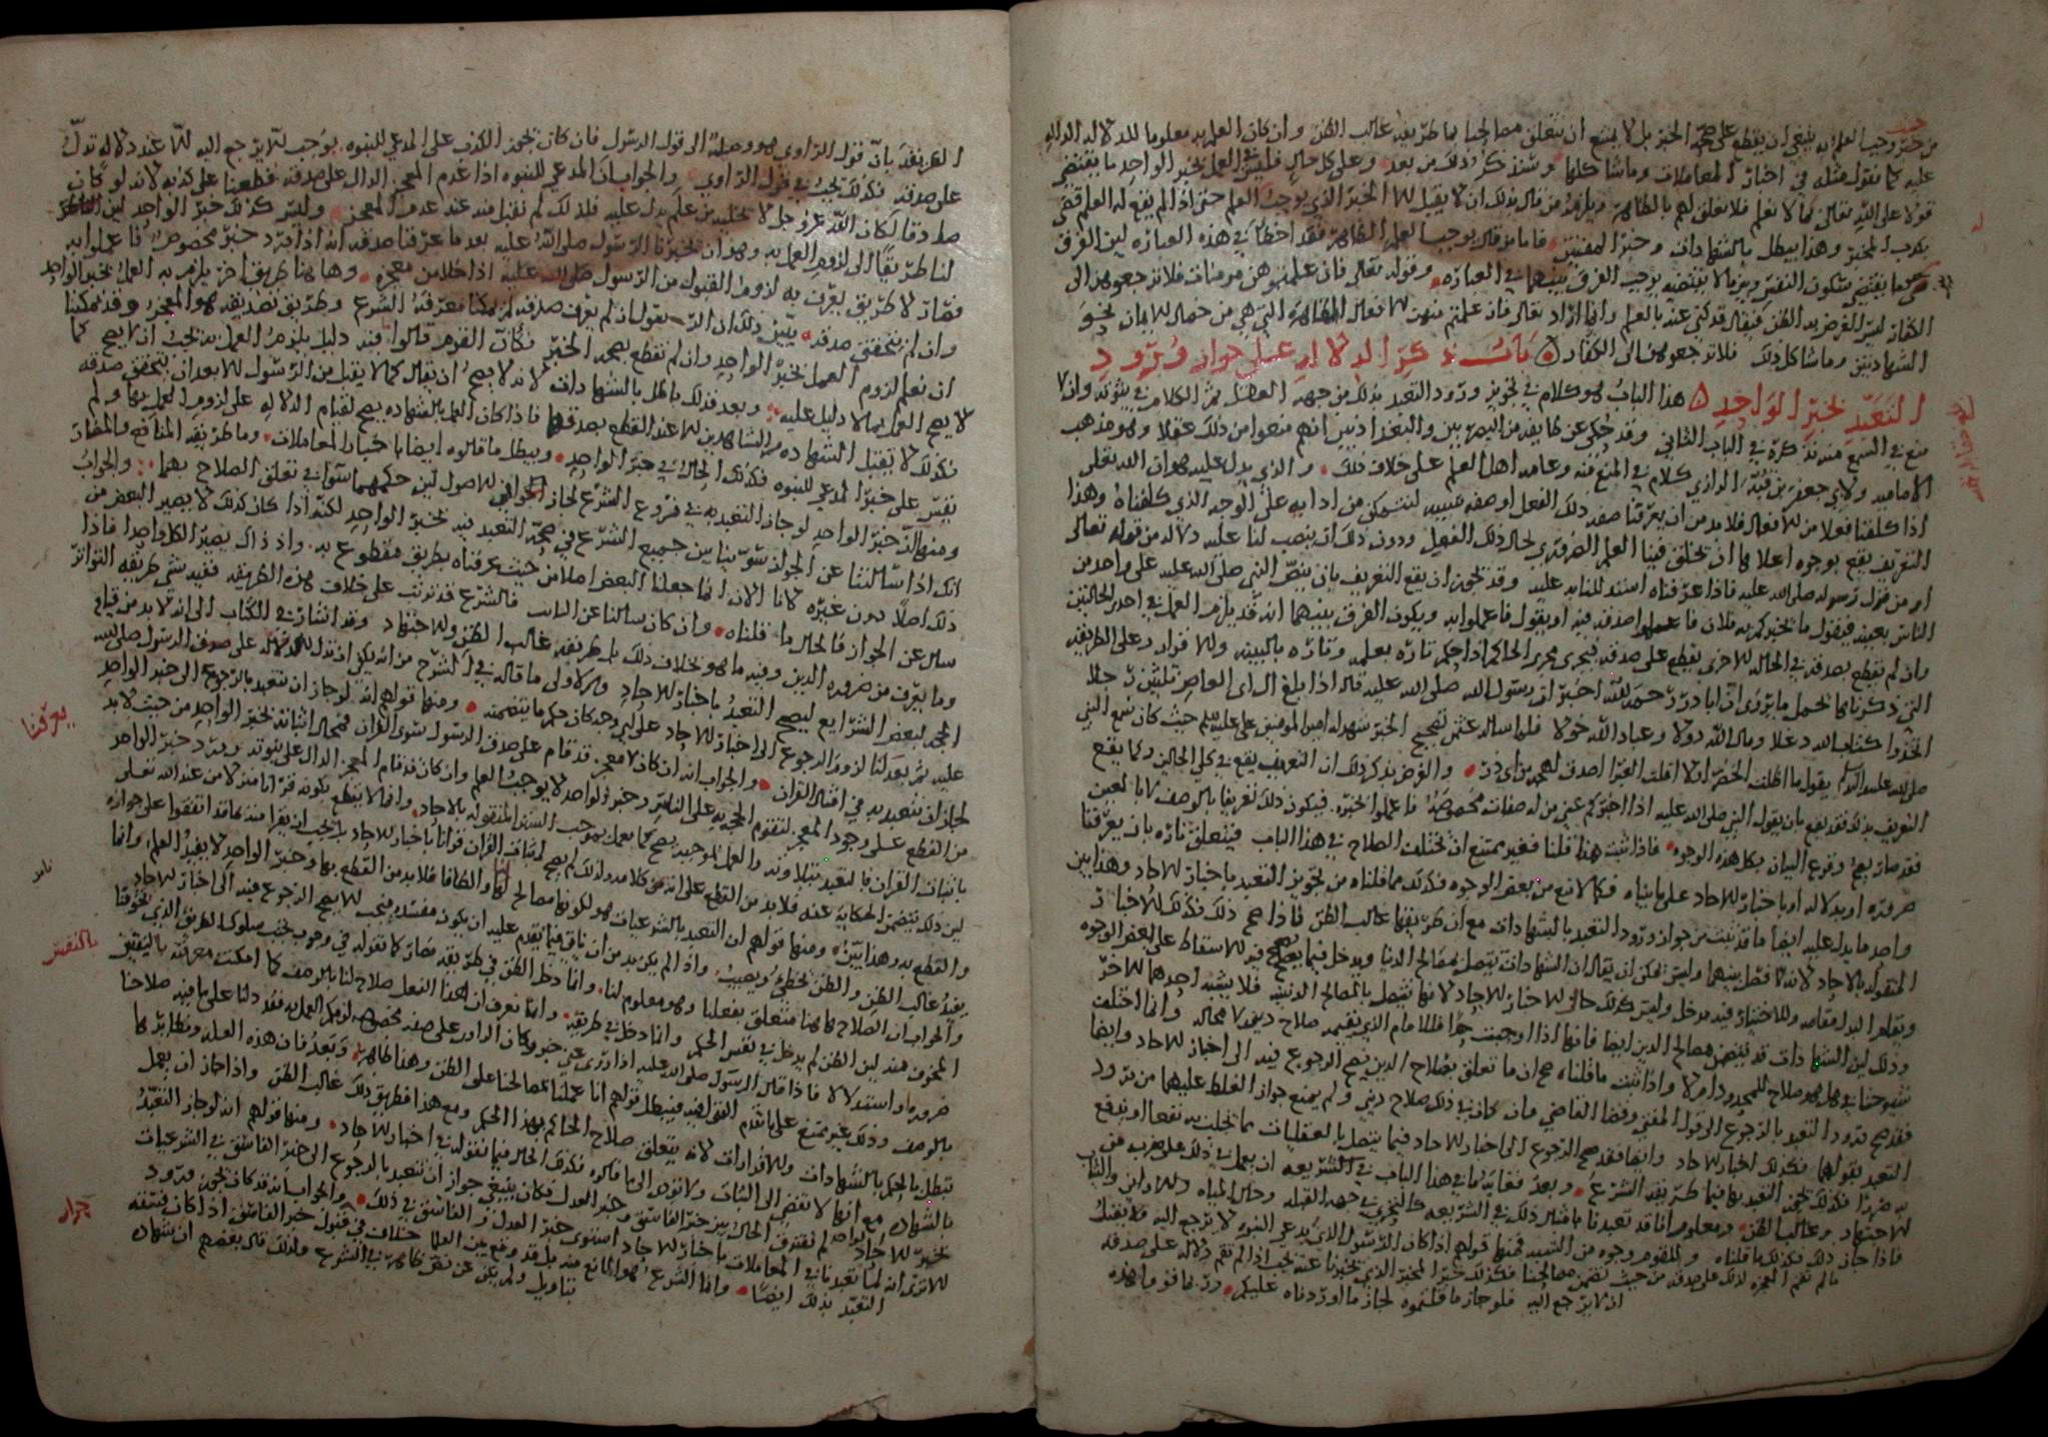 من حيث وجب العلم انه ينبغي ان يقطع على صحة الخبز بل لا يمتنع ان تتعلق مصالحنا بما طريقه غالب الظن وان كان العلم به معلوما للدلاله الداله
عليه كما نقول مثله في اخبار المعاملات وما شاكلها وسنذكر ذلك من بعد وعلى كل حال فليس في العمل بخبر الواحد ما يقتضي
قولا على الله تعالى بما لا نعلم فلا تعلق لهم بالظاهر ويلزم من قال بذلك ان لا يقبل الا الخبر الذي يوجب العلم حتى اذا لم يقع له العلم قضى
بكذب المخبر وهذا يبطل بالشهادات وخبر المفتين فاما من قال يوجب العلم الظاهر فقد اخطأ في هذه العباره لان الفرق
بين ما يقتضي سكون النفس وبين ما لا يقتضيه يوجب الفرق بينهما في العباره وقوله تعالى فان علمتموهن مومنات فلا ترجعوهن الى
الكفار ليس الغرض به الظن فيقال قد كنى عنه بالعلم وانما اراد تعالى فان علمتم منهن الافعال الظاهره التي هي من خصال الايمان نحو
الشهادتين وما شاكل ذلك فلا ترجعوهن الى الكفار باب ذكر الدلاله على جواز ورود
التعبد بخبر الواحد هذا الباب هو كلام في تجويز ورود التعبد بذلك من جهه العقل ثم الكلام في ثبوته وان لا
منع في السمع منه نذكره في الباب الثاني وقد حكي عن طايفه من البصريين والبغداديين انهم منعوا من ذلك عقلا وهو مذهب
الاماميه ولابي جعفر بن قبه الرازي كلام في المنع منه وعامه اهل العلم على خلاف ذلك والذي يدل عليه هو ان الله تعالى
اذا كلفنا فعلا من الافعال فلا بد من ان يعرفنا صفه ذلك الفعل او صفه سببه لنتمكن من ادايه على الوجه الذي كلفناه وهذا
التعريف يقع بوجوه اعلاها ان يخلق فينا العلم الضروري بحال ذلك الفعل ودون ذلك ان ينصب لنا عليه دلاله من قوله تعالى
او من قول رسوله صلى الله عليه فاذا عرفناه استدللنا به عليه وقد يجوز ان يقع التعريف بان ينص النبي صلى الله عليه على واحد من
الناس بعينه فيقول ما يخبركم به فلان فاعملوا صدقه فيه او يقول فاعملوا به ويكون الفرق بينهما انه قد يلزم العمل في احدى الحالتين
وان لم نقطع بصدقه في الحاله الاخرى يقطع على صدقه فيجري مجرى الحاكم اذا حكم تاره بعلمه وتاره بالبينه والاقرار وعلى الطريقه
التي ذكرناها نحمل ما يروى ان ابا ذر رحمه الله اخبر ان رسول الله صلى الله عليه قال اذا بلغ ال ابي العاص ثلثين رجلا
اتخذوا كتاب الله دغلا ومال الله دولا وعباد الله خولا فلما سال عثمن تصحيح الخبر شهد له امير المومنين علي عليه السلم حيث كان سمع النبي
صلى الله عليه واله يقول ما اظلت الخضرا ولا اقلت الغبرا اصدق لهجه من ابي ذر والغرض بذكر ذلك ان التعريف يقع في كلي الحالين وكما يقع
التعريف بذلك فقد يقع بان يقول النبي صلى الله عليه اذا اخبركم عني من له صفات مخصوصه فاعملوا بخبره فيكون ذلك تعريفا بالوصف لا بالعين
فقد صار يصح وقوع البيان بكل هذه الوجوه فاذا ثبت هذا قلنا فغير ممتنع ان يختلف الصلاح في هذا الباب فيتعلق تاره بان يعرفنا
ضروره او بدلاله او باخبار الاحاد على ما بيناه فكما لا نمنع من بعض الوجوه فكذلك مما قلناه من تجويز التعبد باخبار الاحاد وهذا بين
واحد ما يدل عليه ايضا ما قد ثبت من جواز ورود التعبد بالشهادات مع ان طريقها غالب الظن فاذا صح ذلك فكذلك الاخبار
المنقوله بالاحاد لانه لا فصل بينهما وليس يمكن ان يقال ان الشهادات تتصل بمصالح الدنيا ويدخل فيما يصح فيه الاسقاط على بعض الوجوه
ويقام البدل مقامه وللاختيار فيه مدخل وليس كذلك حال الاخبار الاحاد لانها تتصل بالمصالح الدينيه فلا يشبه احدهما الاخر
وذلك لان الشهادات قد تتضمن مصالح الدين ايضا فانها اذا اوجبت حدا فللامام الذي يقيمه صلاح ديني لا محاله وانما اختلف
شيوخنا في هل هو صلاح للمحدود ام لا واذا ثبت ما قلناه صح ان ما تعلق بصلاح الدين يصح الرجوع فيه الى اخبار الاحاد وايضا
فقد صح ورود التعبد بالرجوع الى قول المفتي وقضا القاضي وان كان في ذلك صلاح ديني ولم يمنع جواز الغلط عليهما من ورود
التعبد بقولهما فكذلك اخبار الاحاد وايضا فقد صح الرجوع الى اخبار الاحاد فيما يتصل بالعقليات مما نجلب به نفعا او ندفع
به ضررا فكذلك يجوز التعبد بها فيما طريقه الشرع وبعد فغايه ما في هذا الباب في الشريعه ان يعمل في ذلك على ضرب من
الاجتهاد وغالب الظن ومعلوم انا قد تعبدنا بامثال ذلك في الشريعه كالتحري في جهه القبله وحال المياه والاواني والثياب
فاذا جاز ذلك فكذلك ما قلناه وللقوم وجوه من الشبه فمنها قولهم اذا كان الرسول الذي يدعي النبوه لا يرجع اليه فلا يقبل
ما لم تقم المعجزه لذلك على صدقه من حيث تضمن مصالحنا فكذلك خبر المخبر الذي يخبرنا عنه يجب اذا لم تقم دلاله على صدقه
ان لا يرجع اليه فلو جاز ما قلتموه لجاز ما اوردناه عليكم وربما قووا هذه
الطريقه بان قول الراوي هو وصله الى قول الرسول فان كان تجويز الكذب على المدعي للنبوه يوجب الا يرجع اليه الا عند دلاله تدل
على صدقه فكذلك يجب في قول الراوي والجواب ان المدعي للنبوه اذا عدم المعجز الدال على صدقه قطعنا على كذبه لانه لو كان
صادقا لكان الله عز وجل لا يخليه من علم يدل عليه فلذلك لم نقبل منه عند عدم المعجز وليس كذلك خبر الواحد لان الظاهر
لنا طريقا الى لزوم العمل به وهو ان يخبرنا الرسول صلى الله عليه بعد ما عرفنا صدقه انه اذا ورد خبر مخصوص فاعملوا به
فصار لا طريق يعرف به لزومنا القبول من الرسول صلى الله عليه اذا خلا من معجزه وهاهنا طريق اخر يلزم به العمل بخبر الواحد
وان لم نتحقق صدقه يبين ذلك ان الرسول ان لم يعرف صدقه لم يمكنا معرفه الشرع وطريق تصديقه هو المعجز وقد يمكننا
ان نعلم لزوم العمل بخبر الواحد وان لم نقطع بصحه الخبر فكان القوم قالوا فيه دليل يلزم العمل به يجب ان لا يصح كما
لا يصح العمل بما لا دليل عليه وبعد فذلك باطل بالشهادات لانه لا يصح ان يقال كما لا يقبل من الرسول الا بعد ان يتحقق صدقه
فكذلك لا تقبل الشهاده من الشاهدين الا عند القطع بصدقهما فاذا كان العمل بالشهاده يصح لقيام الدلاله على لزوم العمل بها ولم
يقس على خبر المدعي للنبوه فكذلك الحال في خبر الواحد ويبطل ما قالوه ايضا باخبار المعاملات وما طريقه المنافع والمضار
ومنها ان خبر الواحد لو جاز التعبد به في فروع الشرع لجاز في الاصول لان حكمهما سوا في تعلق الصلاح بهما والجواب
انك اذا سالتنا عن الجواز سوينا بين جميع الشرع في صحه التعبد فيه بخبر الواحد لكنه اذا كان كذلك لا يصير البعض من
ذلك اصلا دون غيره لانا الان انما جعلنا البعض اصلا من حيث عرفناه بطريق مقطوع به واذ ذاك يصير الكل واحدا فاذا
سال عن الجواز فالحال ما قلناه وان كان سالنا عن الثابت فالشرع قد ترتب على خلاف هذه الطريقه ففيه شي طريقه التواتر
وما يعرف من ضروره الدين وفيه ما هو بخلاف ذلك بل طريقه غالب الظن والاجتهاد وقد اشار في الكتاب الى انه لا بد من قيام
الحجه لبعض الشرايع ليصح التعبد باخبار الاحاد والاولى ما قاله في الشرح من انه يكفي ان تدل الدلاله على صدق الرسول صلى الله
عليه ثم يعدلنا لزوم الرجوع الى اخبار الاحاد على اي وجه كان حكم ما يتضمنه ومنها قولهم انه لو جاز ان نتعبد بالرجوع الى خبر الواحد
لجاز ان نتعبد به في اثبات القران والجواب انه ان كان لا معجز قد قام على صدق الرسول سوى القران فمحال اثباته بخبر الواحد من حيث لا بد
من القطع على وجود المعجز لتقوم الحجه به على الناس وخبر الواحد لا يوجب العلم وان كان قد قام المعجز الدال على نبوته ويرد خبر الواحد
باثبات القران فالتعبد بتلاوته والعمل بموجبه يصح كما يعمل بموجب السنن المنقوله بالاحاد وانما لا يقطع بكونه قرانا منزلا من عند الله تعالى
لان ذلك يتضمن الحكايه عنه فلا بد من القطع على انه من كلامه ولذلك لم يصح اثبات القران قرانا باخبار الاحاد
والقطع به وهذا بين ومنها قولهم ان التعبد بالشرعيات هو لكونها مصالح لنا والطافا فلا بد من القطع بها وخبر الواحد لا يفيد العلم وانما
يفيد غالب الظن والظن يخطئ ويصيب واذا لم يكن بد من ان نامن فيما يقدم عليه ان يكون مفسده فيجب الا يصح الرجوع فيه الى اخبار الاحاد
والجواب ان الصلاح هاهنا متعلق بفعلنا وهو معلوم لنا وانما دخل الظن في طريقه فصار كما نقوله في وجوب تجنب سلوك الطريق الذي يخوفنا
المخوف منه لان الظن لم يدخل في نفس الحكم وانما دخل في طريقه وانما نعرف ان هذا الفعل صلاح لنا بالوصف كما امكنت معرفته بالتعيين
ضروره او استدلالا فاذا قال الرسول صلى الله عليه اذا روى عني خبر وكان الراوي على صفه مخصوصه لزمكم العمل به فقد دلنا على ما فيه صلاحنا
بالوصف وذلك غير ممتنع على ما تقدم القول فيه فيبطل قولهم انا عملنا بمصالحنا على الظن وهذا ظاهر وبعد فان هذه العله ونظايرها
تبطل بالحكم بالشهادات والاقرارات لانه يتعلق صلاح الحاكم بهذا الحكم ومع هذا فطريق ذلك غالب الظن واذا جاز ان يعمل
بالشهاده مع انها لا تفضي الى الثبات ولا تودي الى ما قالوه فكذلك الحال فيما نقوله في اخبار الاحاد ومنها قولهم انه لو جاز التعبد
بخبر الاحاد لم يفترق الحال بين خبر الفاسق وخبر العدل فكان ينبغي جواز ان نتعبد بالرجوع الى خبر الفاسق في الشرعيات
الا ترى انه لما تعبدنا في المعاملات باخبار الاحاد استوى خبر العدل والفاسق في ذلك والجواب انه قد كان يجوز ورود
التعبد بذلك ايضا وانما الشرع هو المانع منه بل قد وقع بين العلما خلاف في قبول خبر الفاسق اذا كان فسقه
بتاويل ولم يكن عن فسق ظاهر في الشرع ولذلك قال بعضهم ان شهاده
يعرفنا
بالنفس
جواز